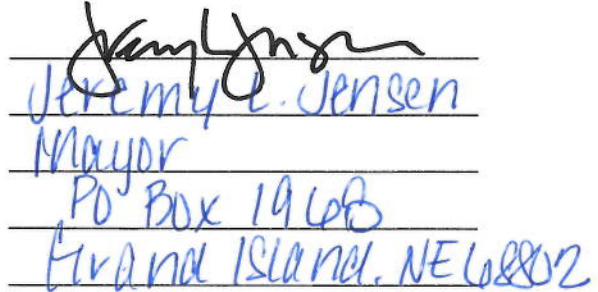 Jeremy L. Jensen
Jeremy L. Jensen
Mayor
PO Box 1968
Grand Island, NE 68802